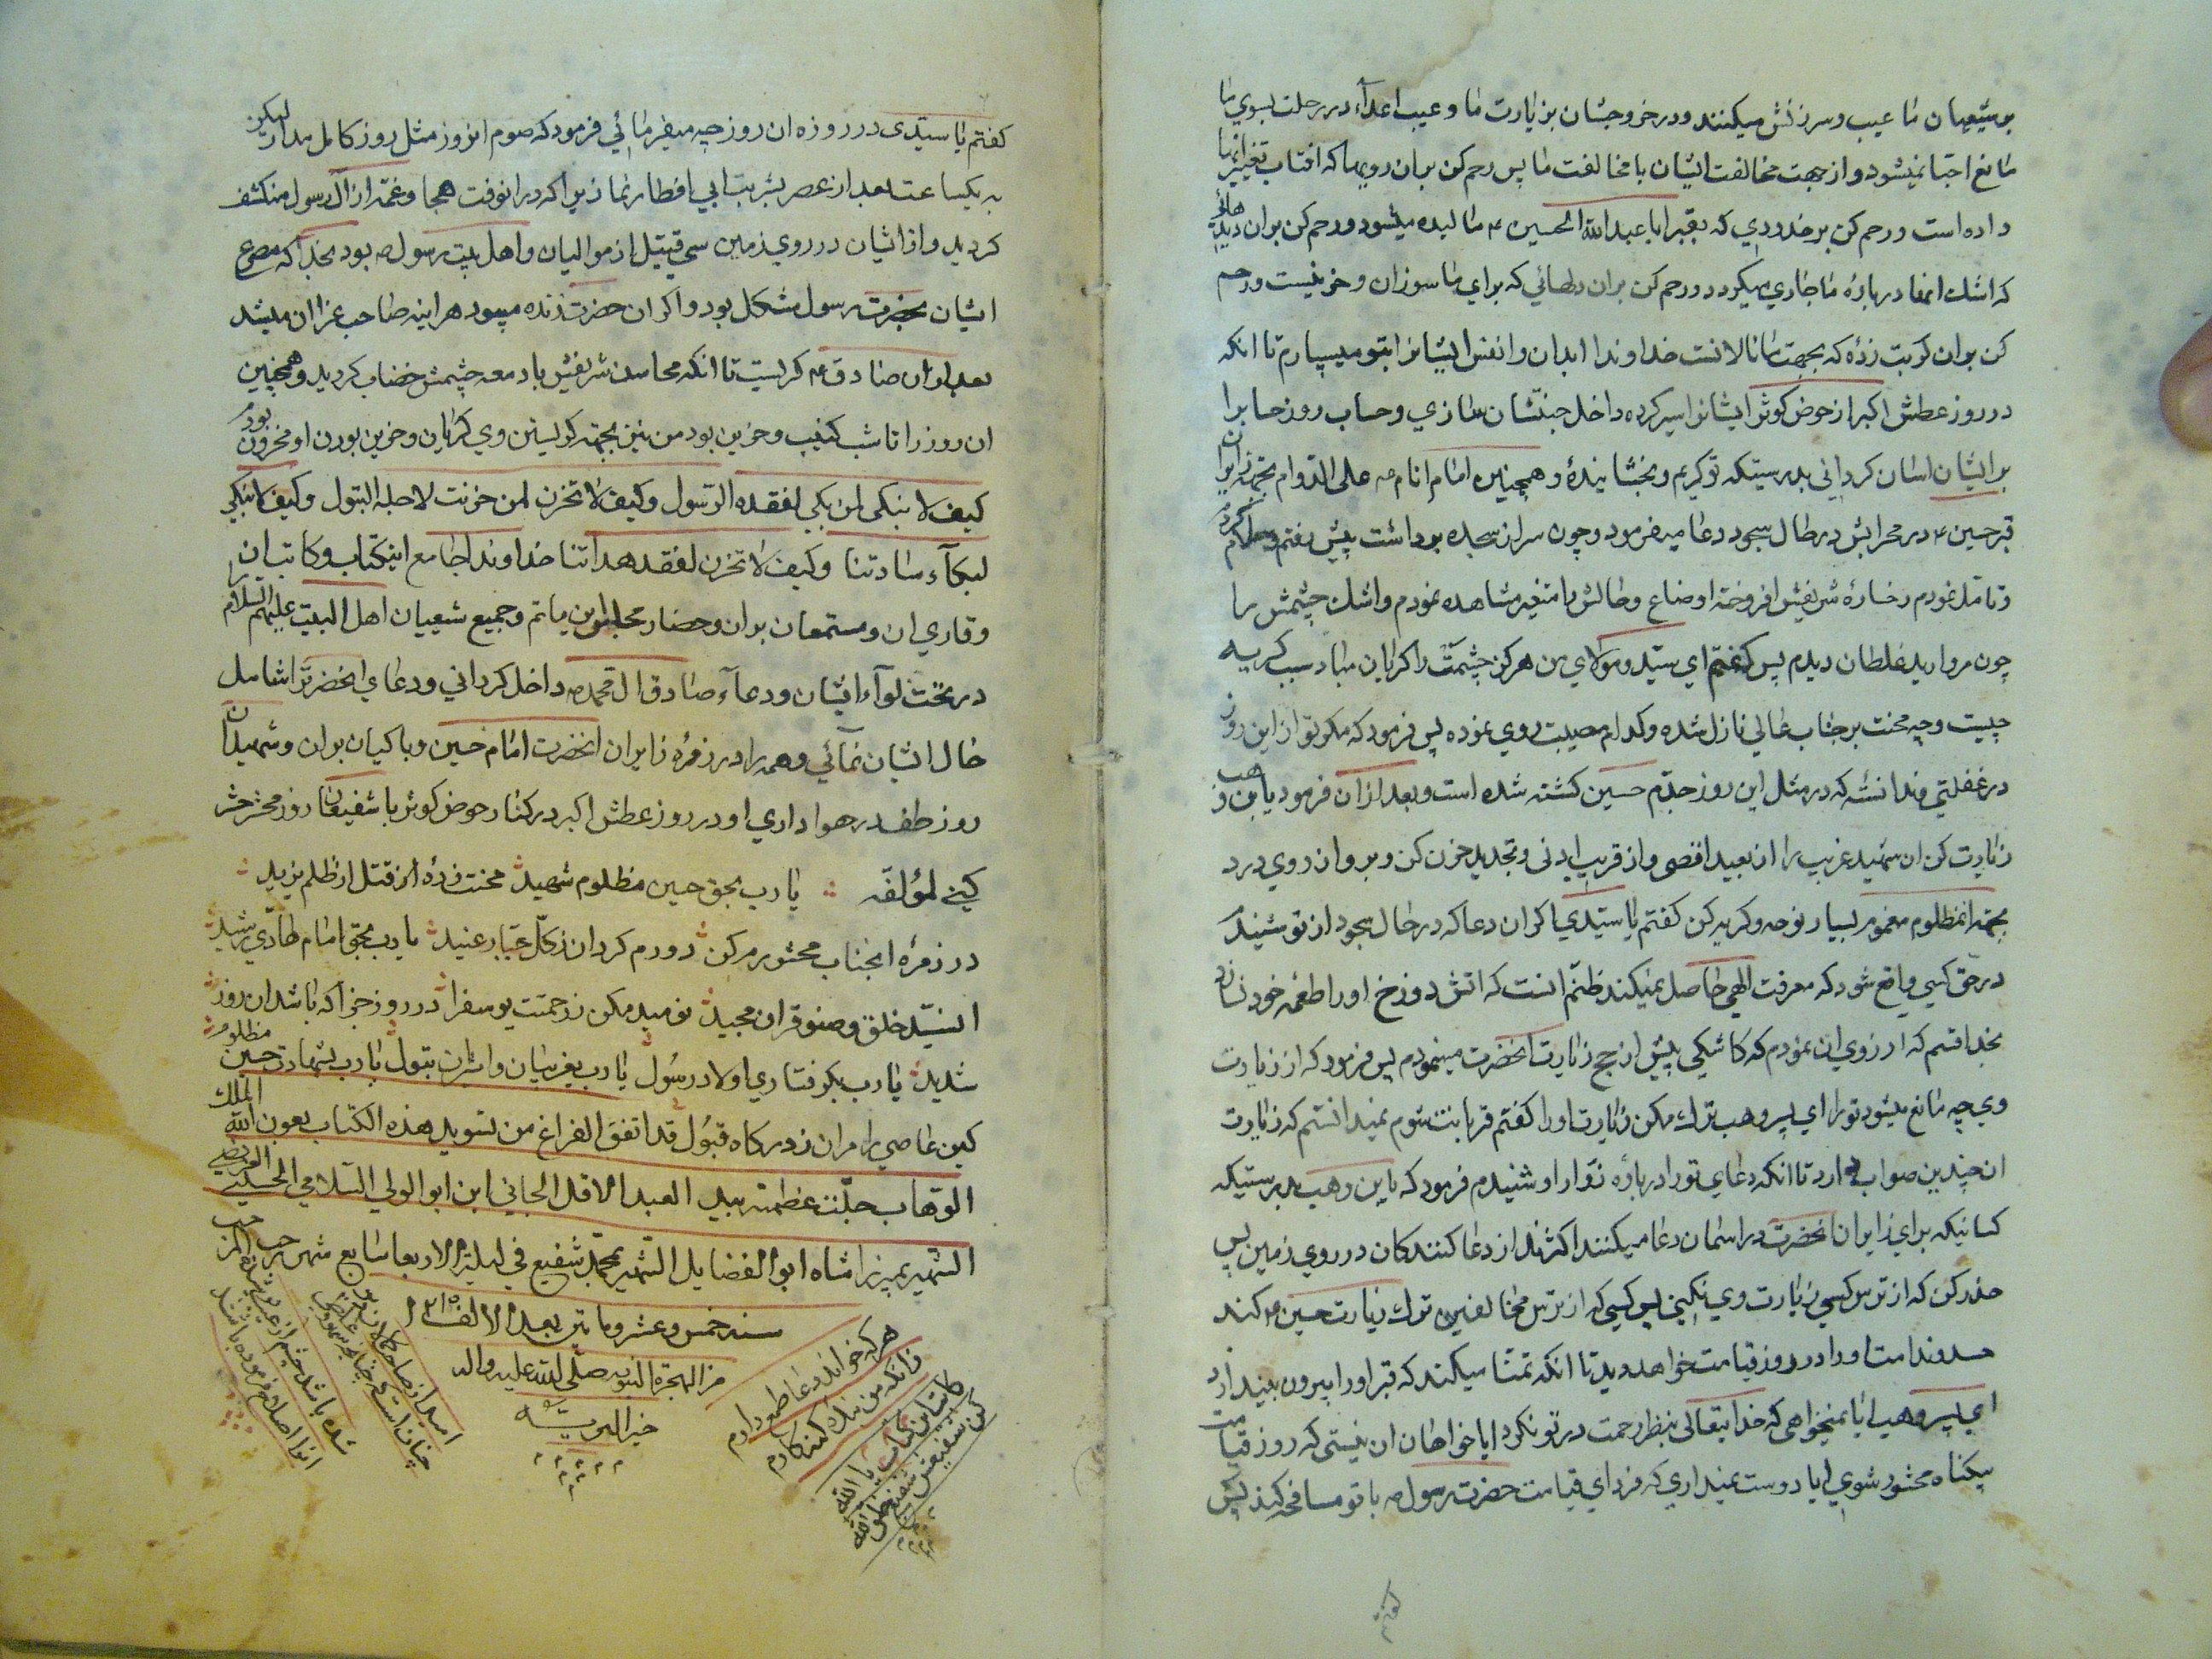 بر شیعیان ما عیب و سرزنش میکنند و در خروجشان بزیارت ما و عیب اعداء در رحلت بسوی ما
مانع احبا نمیشود و از جهت مخالفت ایشان با مخالفت ما پس رحم کن بران رویها که افتاب تغییر انها
داده است و رحم کن بر خدودی که بقبر ابا عبدالله الحسین ع مالیده میشود و رحم کن بران دیدهائی
که اشک انها درباره ما جاری میگردد و رحم کن بران دلهائی که برای ما سوزان و حزینست و رحم
کن بران کربت زده که بجهت ما نالانست خداوندا ابدان و انفس ایشانرا بتو میسپارم تا انکه
در روز عطش اکبر از حوض کوثر ایشانرا سیر کرده داخل جنتشان سازی و حساب روز حسابرا
بر ایشان اسان کردانی بدرستیکه تو کریم و بخشاینده و همچنین امام انام ع علی الدوام بجهت زایران
قبر حسین ع در محرابش در حال سجود دعا میفرمود و چون سر از سجده برداشت پیش رفتم و سلام کردم
و تامل نمودم رخساره شریفش افروخته اوضاع و حالش را متغیر مشاهده نمودم و اشک چشمش را
چون مروارید غلطان دیدم پس گفتم ای سید و مولای من هرگز چشمت را کریان مباد سبب کریه
چیست و چه محنت بر جناب عالی نازل شده و کدام مصیبت روی نموده پس فرمود که مکر تو از این روز
در غفلتی و ندانسته که در مثل این روز جدم حسین کشته شده است و بعد از ان فرمود یا بن وهب
زیارت کن ان شهید غریب را از بعید اقصی و از قریب ادنی و تجدید حزن کن و بر وی از روی درد
بجهة انمظلوم مغموم بسیار نوحه و کریه کن کفتم یا سیدی اکر ان دعا که در حال سجود از تو شنیدم
در حق کسی واقع شود که معرفت الهی حاصل نمیکند ظنم انست که اتش دوزخ او را طعمه خود نسازد
بخدا قسم که ارزوی ان نمودم که کاشکی پیش از حج زیارت انحضرت مینمودم پس فرمود که از زیارت
وی چه مانع میشود تو را ای پسر وهب ترک مکن زیارت او را کفتم قربانت شوم نمیدانستم که زیارت
ان چندین صواب دارد تا انکه دعای تو را درباره زوار او شنیدم فرمود که یا بن وهب بدرستیکه
کسانیکه برای زایران انحضرت در اسمان دعا میکنند اکثرند از دعا کنندکان در روی زمین پس
حذر کن که از ترس کسی زیارت وی نکنی پس کسی که از ترس مخالفین ترک زیارت حسین ع کند
حسد و ندامت او را در روز قیامت خواهد دید تا انکه تمنا میکند که قبر او را بیرون بیندازد
ای پسر وهب ایا نمیخواهی که خدایتعالی بنظر رحمت در تو نکرد ایا خواهان ان نیستی که روز قیامت
بیکناه محشور شوی ایا دوست نمیداری که فردای قیامت حضرت رسول ص با تو مصافحه کند پس
کفتم
کفتم یا سیدی در روزه ان روز چه میفرمائی فرمود که صوم انروز مثل روز کامل مدار لیکن
به یکساعت بعد از عصر بشربت ابی افطار نما زیرا که در انوقت هیجا و غمه از ال رسول منکشف
کردید و از ایشان در روی زمین سی قتیل از موالیان و اهل بیت رسول ص بود بخدا که مصرع
ایشان بحضرت رسول مشکل بود و اکر ان حضرت زنده میبود هر اینه صاحب عزا ان میشد
بعد ازان صادق ع کریست تا انکه محاسن شریفش با دمعه چشمش خضاب کردید و همچنین
ان روز را تا شب کئیب و حزین بود من نیز بجهته کریستن وی کریان و حزین بودن او محزون بودم
کیف لا نبکی لمن بکی لفقده الرسول و کیف لا تحزن لمن حزنت لاجله البتول و کیف لا نبکی
لبکاء ساداتنا و کیف لا تحزن لفقد هداتنا خداوندا جامع اینکتاب و کاتب ان
و قاری ان و مستمعان بران و حضار مجلس این ماتم و جمیع شیعیان اهل البیت علیهم السلام را
در تحت لواء ایشان و دعاء صادق ال محمد ص داخل کردانی و دعای انحضرترا شامل
حال ایشان نمائی و همه را در زمره زایران انحضرت امام حسین و باکیان بران و شهیدان
روز طف در هواداری او در روز عطش اکبر در کنار حوض کوثر با شفیعان روز محشر حشر
کنی لمؤلفه یا رب بحق حسین مظلوم شهید محنت زده از قتل از ظلم یزید
در زمره انجناب محشورم کن دورم کردان ز کل جبار عنید یا رب بحق امام هادی رشید
السید خلق و صنو قران مجید نومید مکن ز رحمتت یوسفرا در روز جزا که باشد ان روز
شدید یا رب بکرفتاری اولاد رسول یا رب بغریبان و اسیران بتول یا رب بشهادت حسین مظلوم
کین عاصی را مران ز درکاه قبول قد اتفق الفراغ من تسوید هذه الکتاب بعون الله الملک
الوهاب جلت عظمته بید العبد الاقل الجانی ابن ابو الولی السلامی الحسینی
الشهیر بمیرزا شاه ابو الفضایل الشهیر بمحمد شفیع فی لیلة الاربعا سابع شهر رجب
سنه خمس و عشر و ماتین بعد الالف ۱۲۱۵
من الهجرة النبویه صلی الله علیه واله
خیر البریه
هرکه خواند دعا طمع دارم
زانکه من بنده کنه کارم
کاتب این کتاب یا الله
کن شفیعش شفیع خلق الله
امید از صاحب
چنان است
شده باشد چشم از عیب پوشیده
انرا اصلاح فرموده باشند